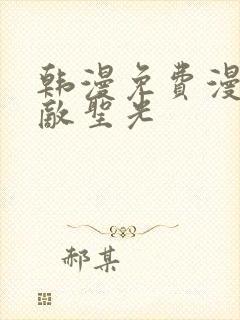 韩漫免费漫
敵聖光
郝某